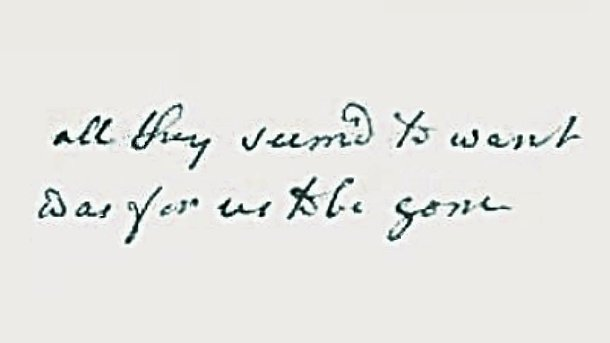 all they seem'd to want
was for us to be gone